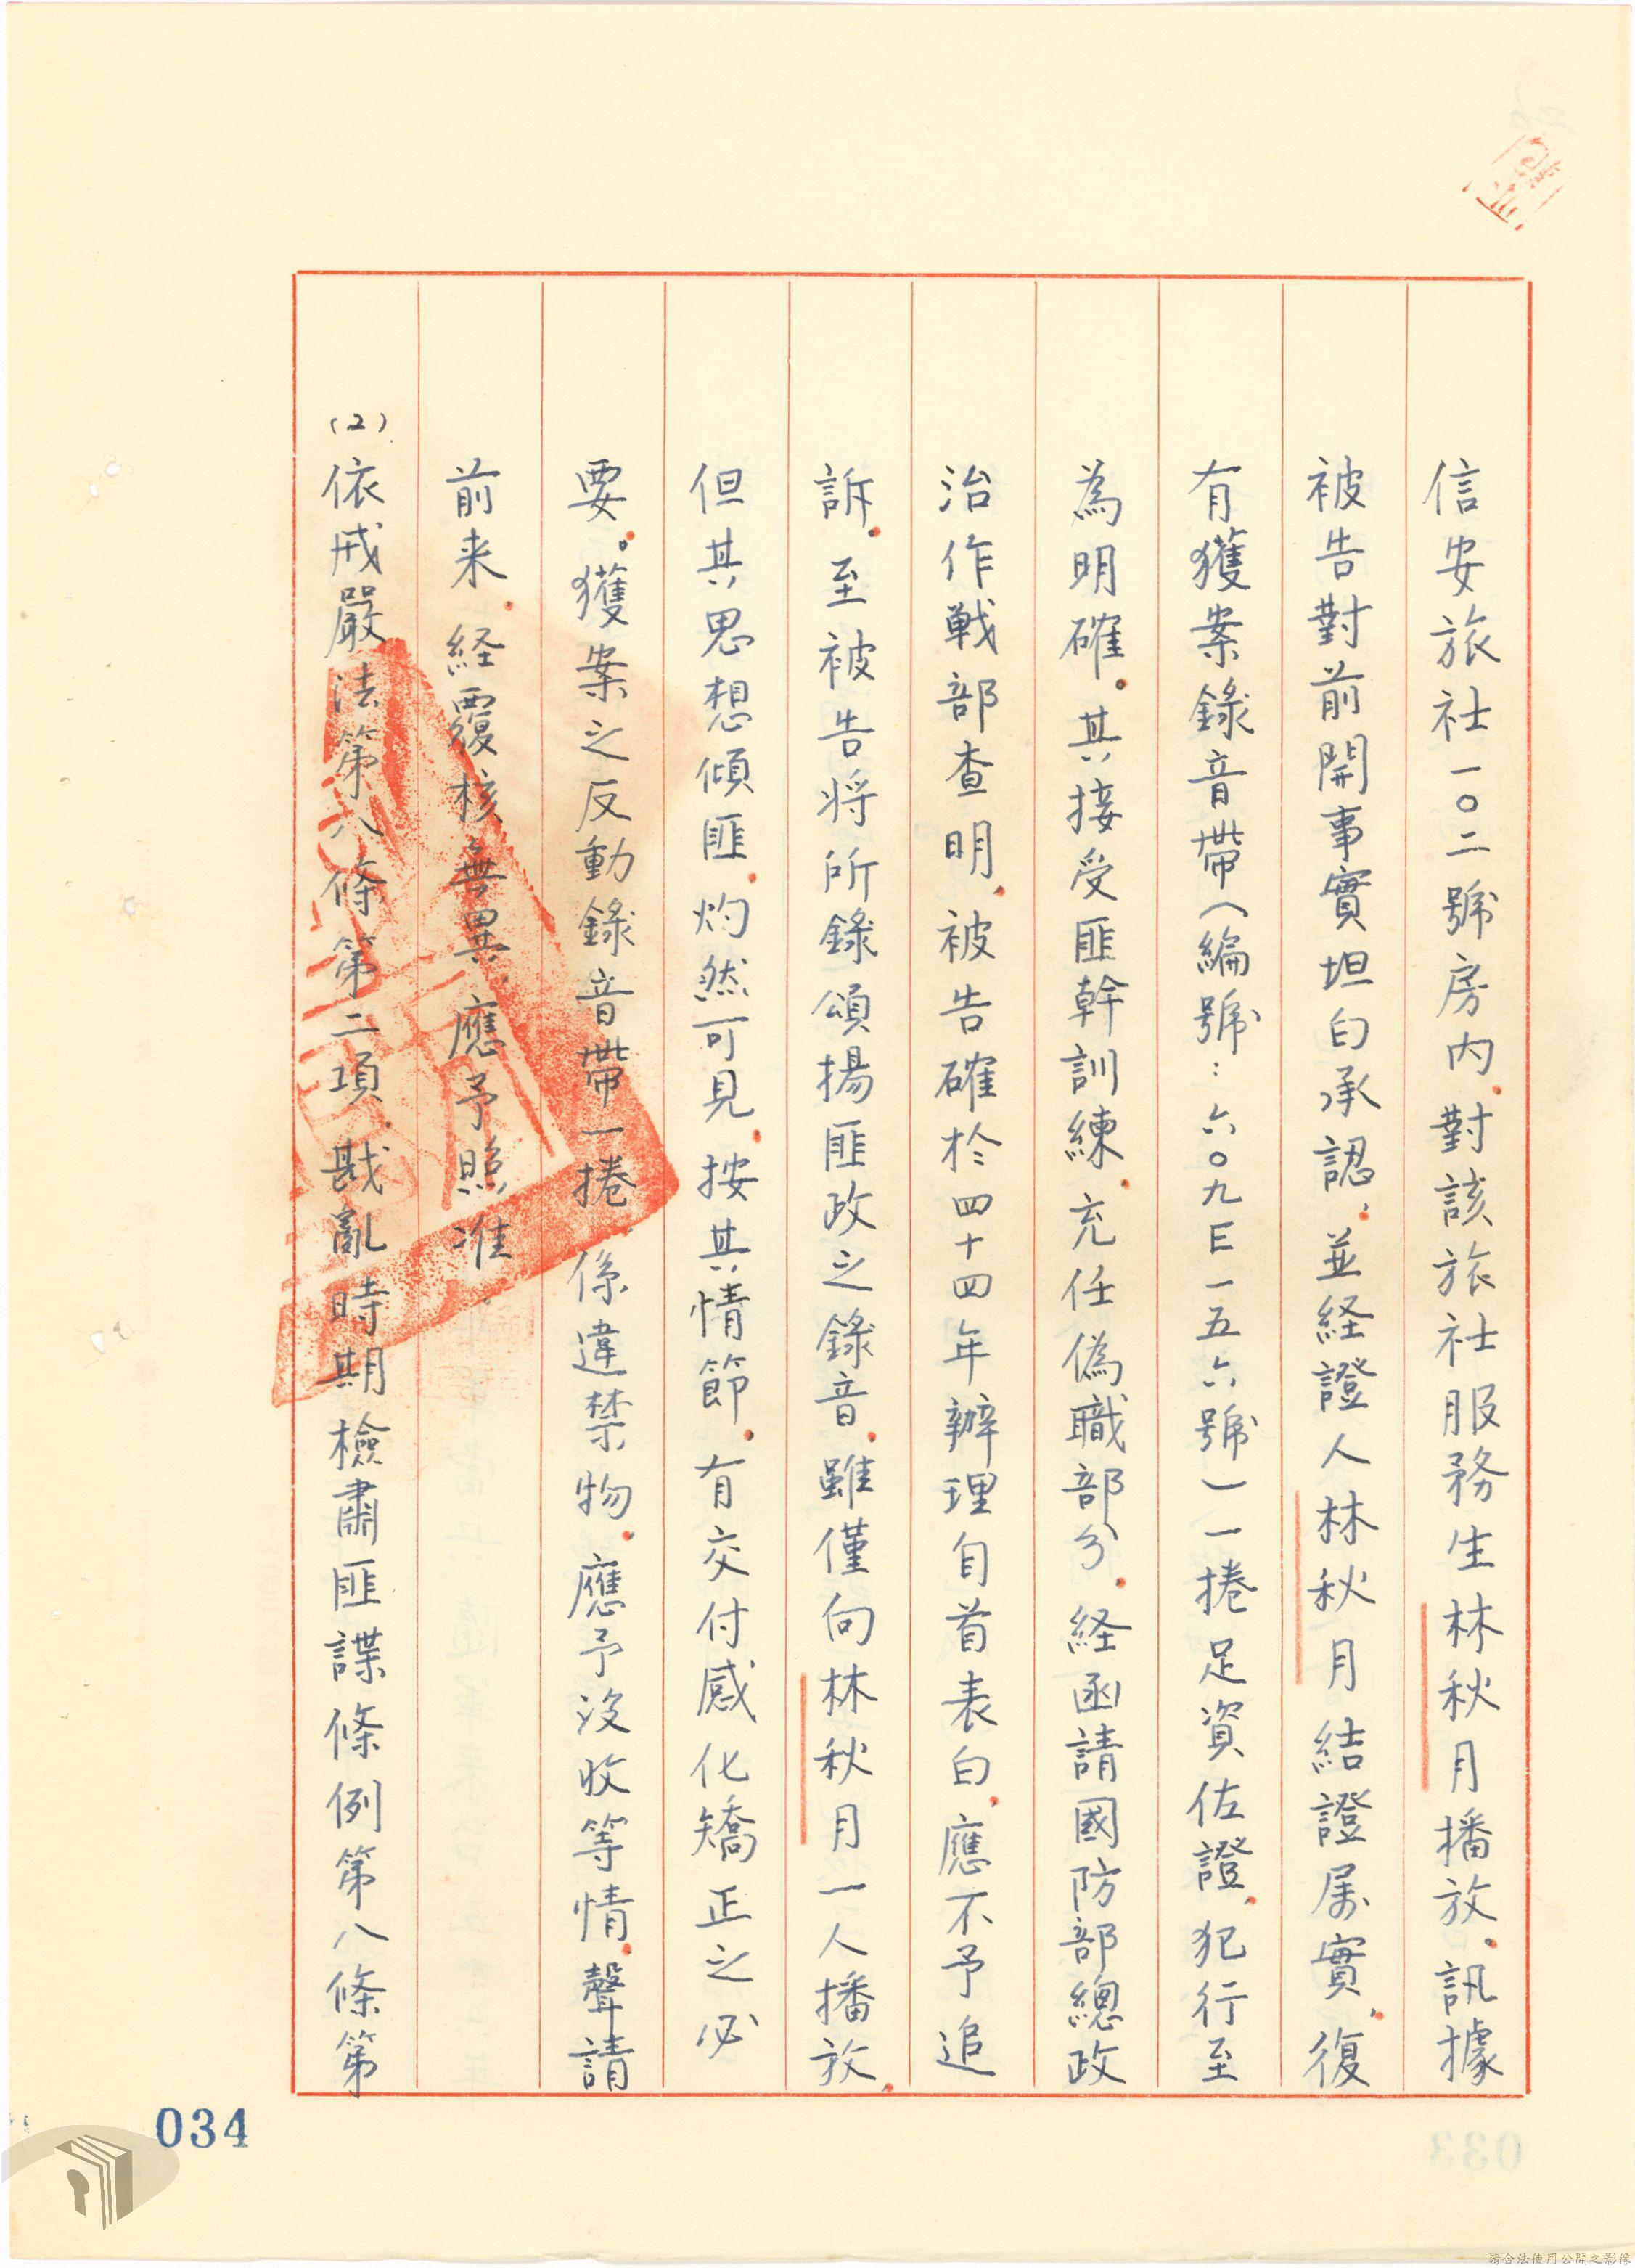 信安旅社一〇二號房內、對該旅社服務生林秋月播放。訊據
被告對前開事實坦白承認、並経證人林秋月結證屬實、復
有獲案錄音帶（編號：六〇九E一五六號）一捲足資佐證、犯行至
為明確。其接受匪幹訓練、充任偽職部分、経函請國防部總政
治作戰部查明、被告確於四十四年辦理自首表白、應不予追
訴。至被告將所錄頌揚匪政之錄音、雖僅向林秋月一人播放、
但其思想傾匪、灼然可見、按其情節、有交付感化矯正之必
要。獲案之反動錄音帶一捲、係違禁物、應予沒收等情、聲請
前来、経覆核無異、應予照准。
(2)依戒嚴法第八條第二項、戡亂時期檢肅匪諜條例第八條第
034
請合法使用公開之影像